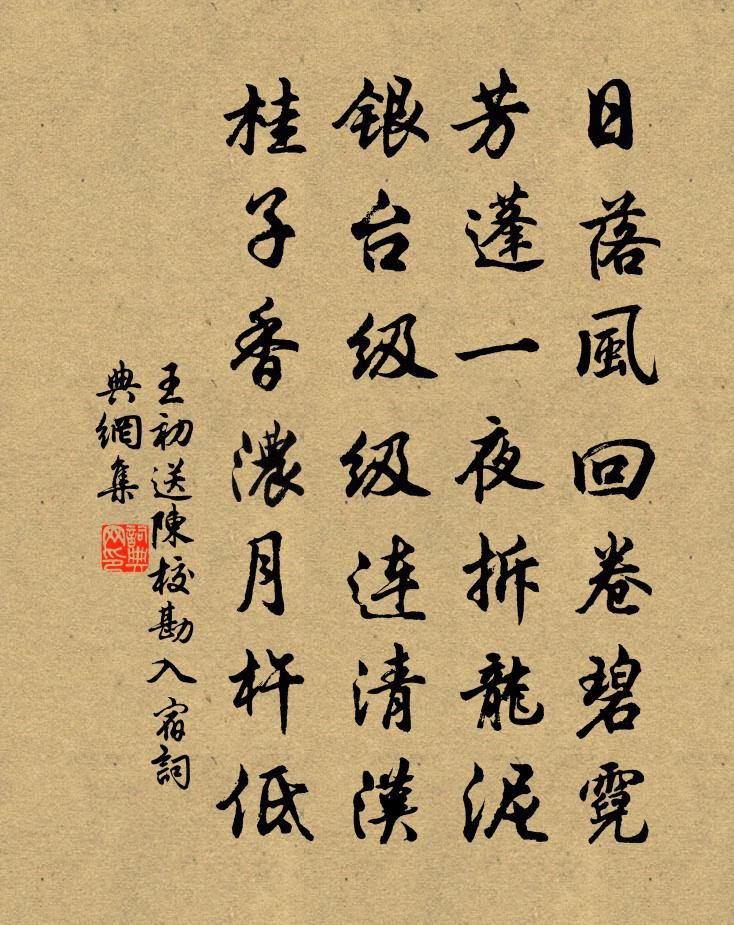 日落風回卷碧霓
芳蓬一夜拆龍泥
銀台级级连清漢
桂子香濃月杵低
王初送陳校勘入宿詞
典網集
詞典网印